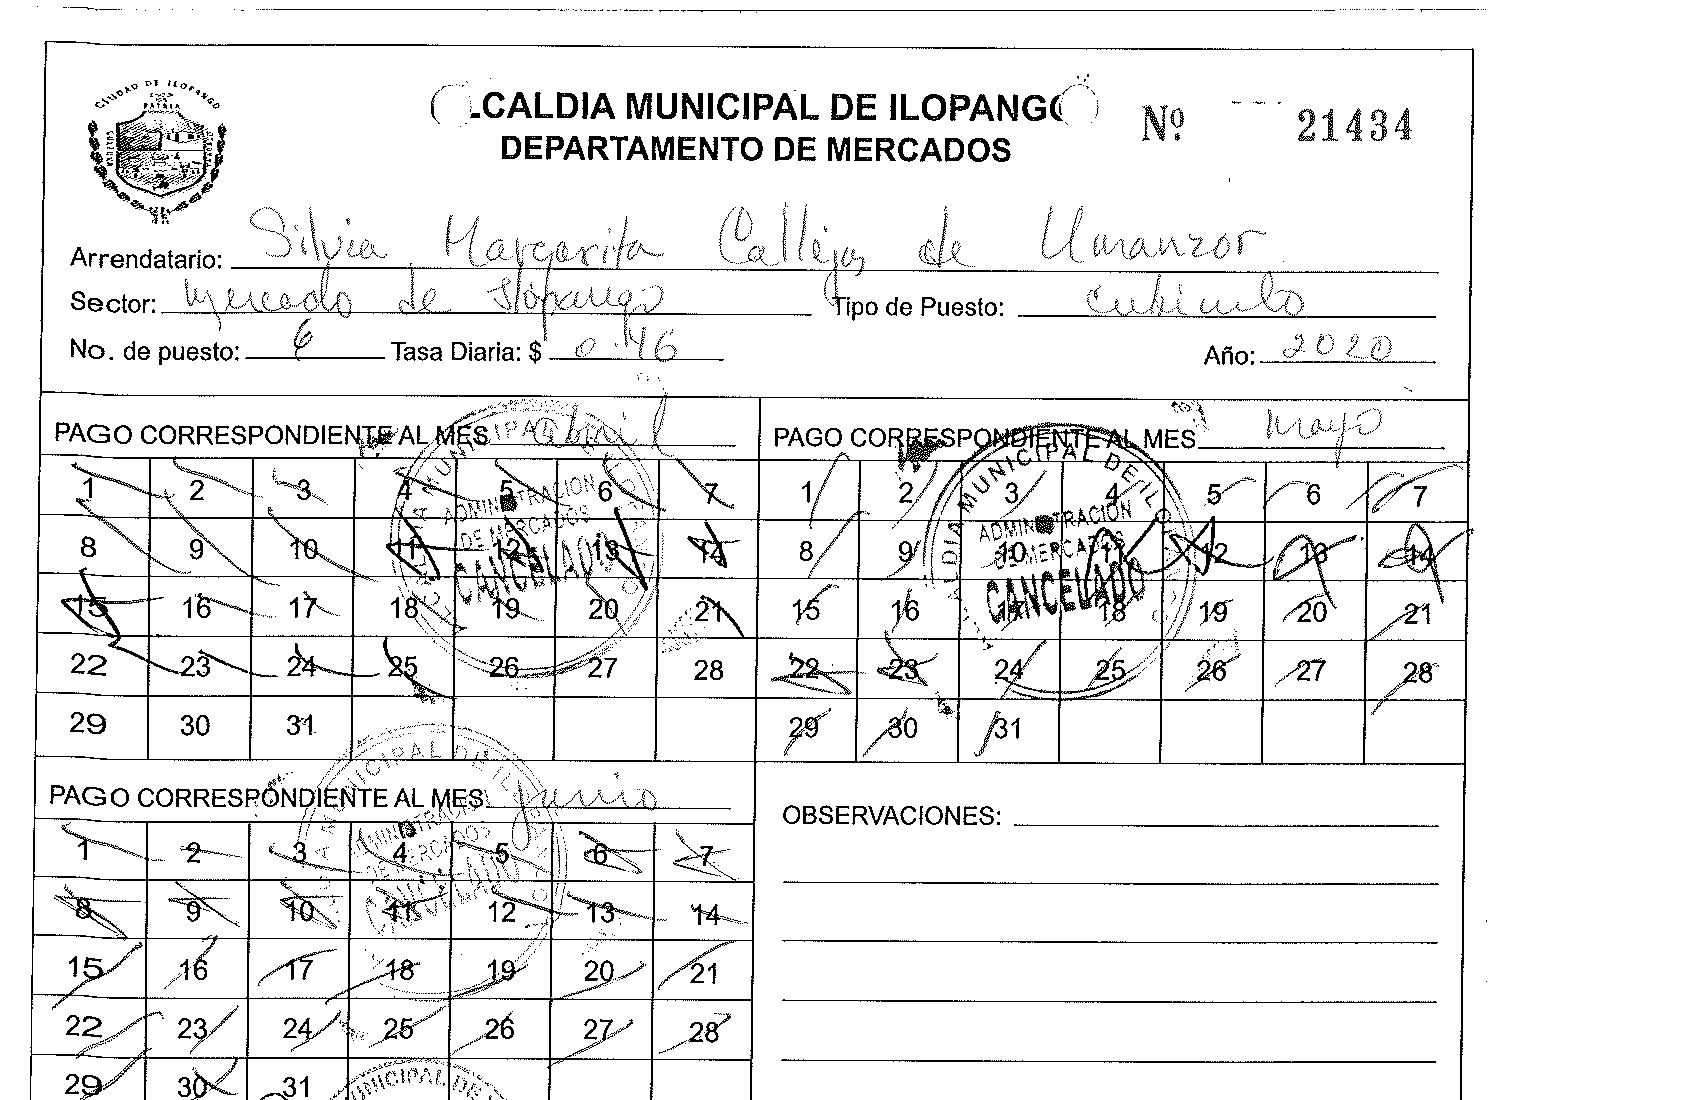 CIUDAD DE ILOPANGO
PATRIA
LCALDIA MUNICIPAL DE ILOPANGO
DEPARTAMENTO DE MERCADOS
Nº 21434
Arrendatario: Silvia Margarita Callejas de Umanzor
Sector: Mercado de Ilopango Tipo de Puesto: cubiculo
No. de puesto: 6 Tasa Diaria: $ 0.46 Año: 2020
PAGO CORRESPONDIENTE AL MES abril
1 2 3 4 5 6 7
8 9 10 11 12 13 14
15 16 17 18 19 20 21
22 23 24 25 26 27 28
29 30 31
MUNICIPAL
ADMINISTRACION
DE MERCADOS
CANCELADO
PAGO CORRESPONDIENTE AL MES mayo
1 2 3 4 5 6 7
8 9 10 11 12 13 14
15 16 17 18 19 20 21
22 23 24 25 26 27 28
29 30 31
ALDIA MUNICIPAL DE ILO
ADMINISTRACION
DE MERCADOS
CANCELADO
PAGO CORRESPONDIENTE AL MES junio
1 2 3 4 5 6 7
8 9 10 11 12 13 14
15 16 17 18 19 20 21
22 23 24 25 26 27 28
29 30 31
MUNICIPAL DE ILO
ADMINISTRACION
DE MERCADOS
CANCELADO
UNICIPAL DE
OBSERVACIONES: